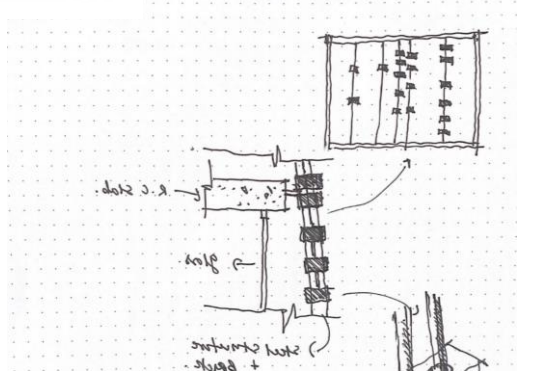 R.C slab.
glass.
steel structure
+ brick.